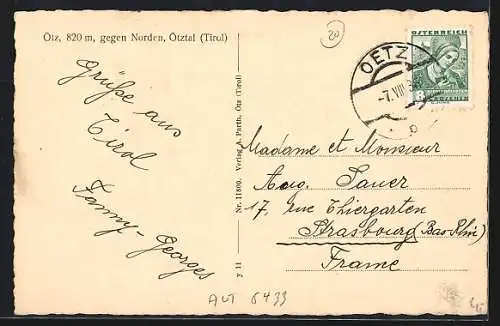 Ötz, 820 m, gegen Norden, Ötztal (Tirol)
20
Grüße aus
Tirol
Fanny-Georges
Nr. 11800. Verlag A. Parth, Ötz (Tirol)
y 11
OETZ
-7.VIII
ÖSTERREICH
8
GROSCHEN
Madame et Monsieur
Aug. Sauer
17, rue Thiergarten
Strasbourg (Bas-Rhin)
France
AUT 6433